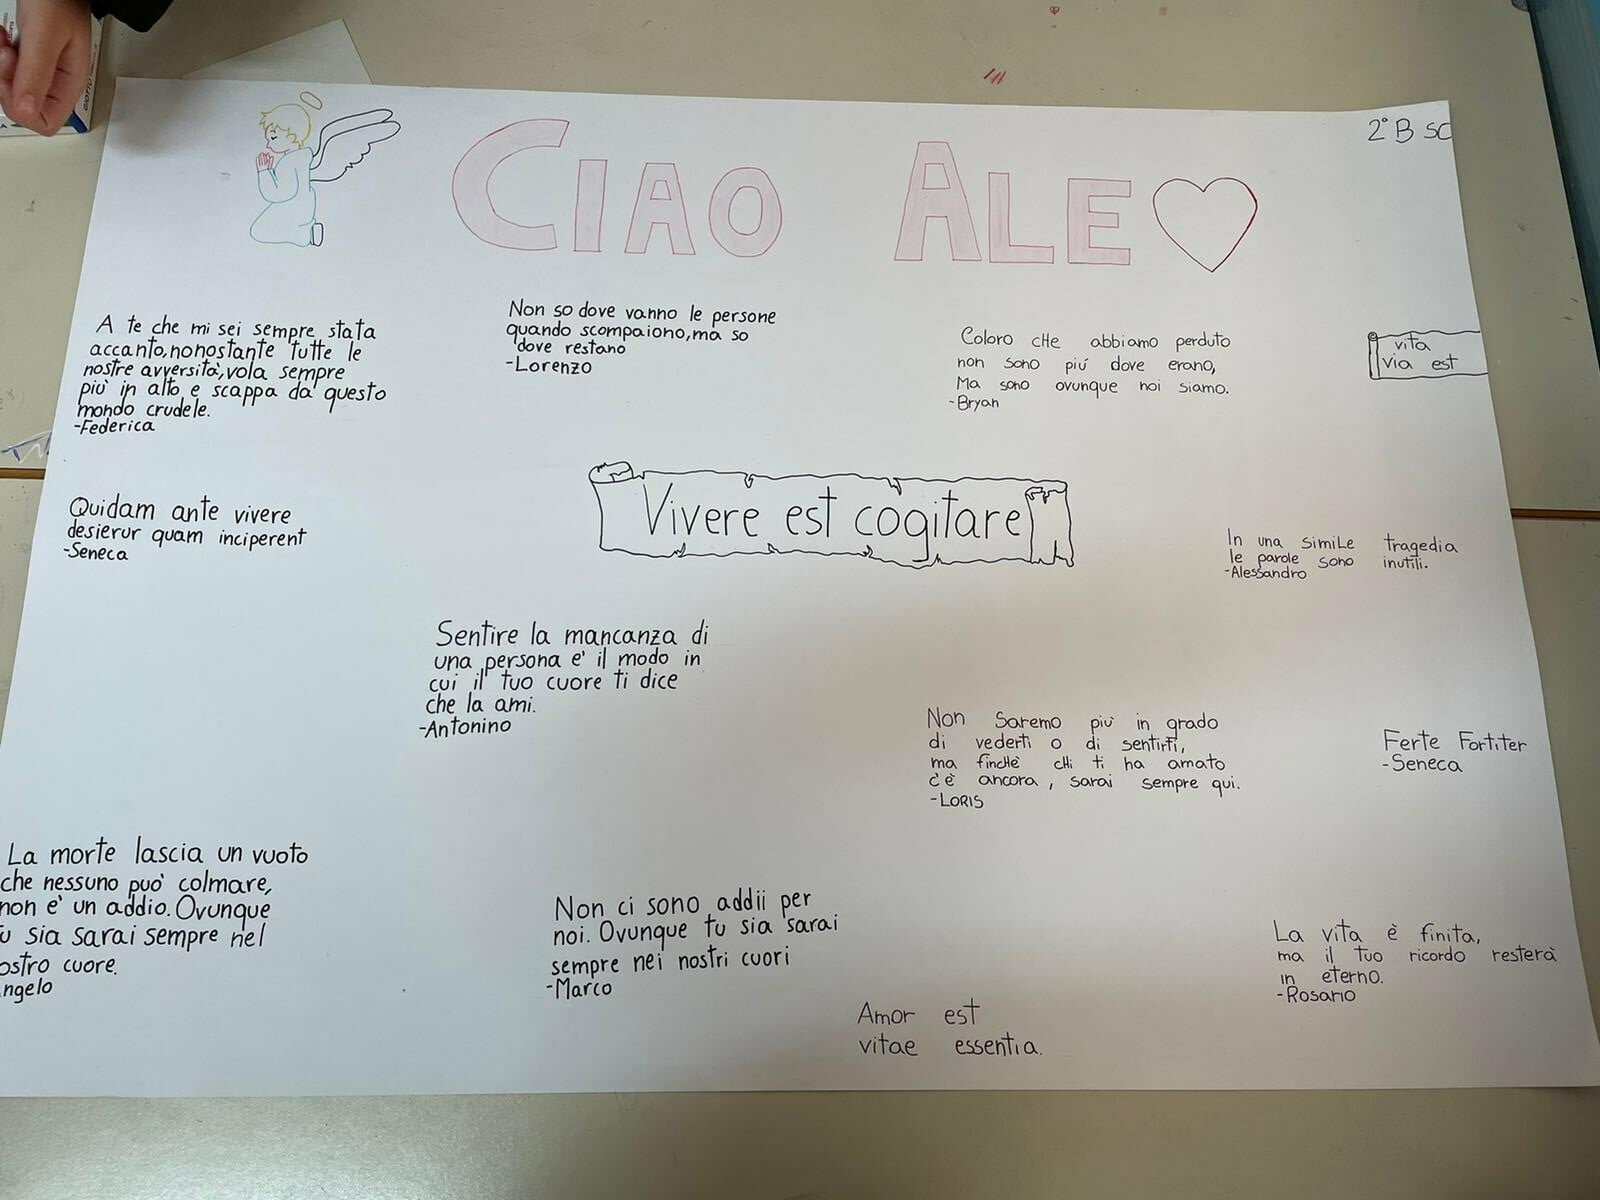 CIAO ALE
2° B SC
A te che mi sei sempre stata
accanto, nonostante tutte le
nostre avversità, vola sempre
più in alto e scappa da questo
mondo crudele.
-Federica
Non so dove vanno le persone
quando scompaiono, ma so
dove restano
-Lorenzo
Coloro cHe abbiamo perduto
non sono piú dove erano,
Ma sono ovunque noi siamo.
-Bryan
vita
via est
Quidam ante vivere
desierur quam inciperent
-Seneca
Vivere est cogitare
In una simile tragedia
le parole sono inutili.
-Alessandro
Sentire la mancanza di
una persona e' il modo in
cui il tuo cuore ti dice
che la ami.
-Antonino
Non Saremo piu' in grado
di vederti o di sentirti,
ma fincHè cHi ti ha amato
c'è ancora, sarai sempre qui.
-LORIS
Ferte Fortiter
-Seneca
La morte lascia un vuoto
che nessuno puo' colmare,
non e' un addio. Ovunque
sia sarai sempre nel
cuore.
Non ci sono addii per
noi. Ovunque tu sia sarai
sempre nei nostri cuori
-Marco
La vita è finita,
ma il tuo ricordo resterà
in eterno.
-Rosario
Amor est
vitae essentia.